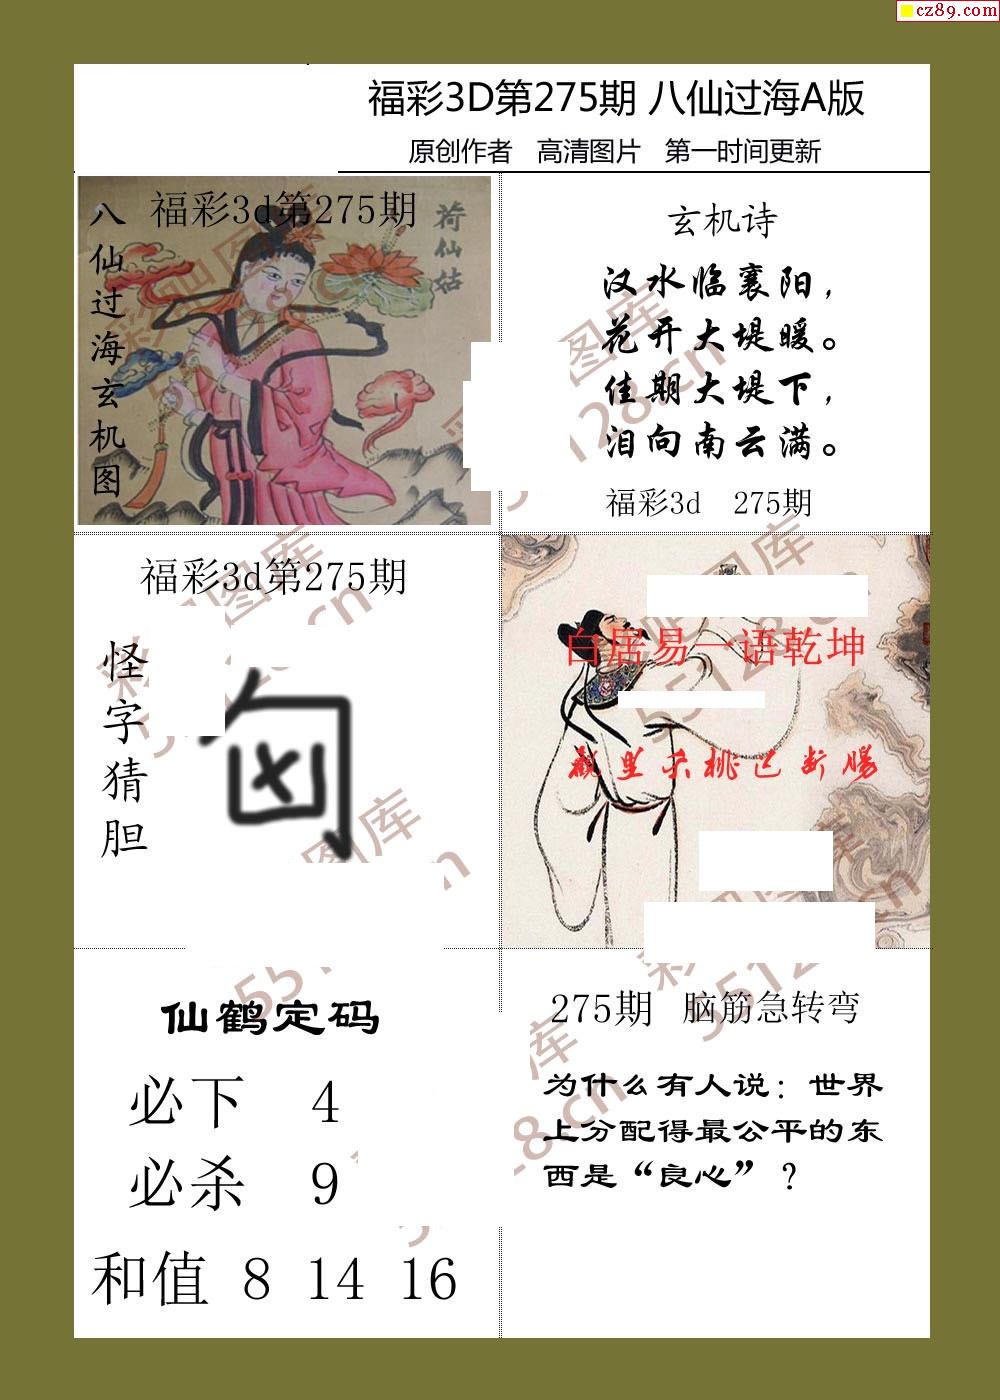 cz89.com
福彩3D第275期 八仙过海A版
原创作者 高清图片 第一时间更新
福彩3d第275期
八仙过海玄机图
荷仙姑
玄机诗
汉水临襄阳，
花开大堤暖。
佳期大堤下，
泪向南云满。
福彩3d 275期
福彩3d第275期
怪字猜胆
白居易一语乾坤
断肠
仙鹤定码
必下 4
必杀 9
和值 8 14 16
275期 脑筋急转弯
为什么有人说：世界
上分配得最公平的东
西是“良心”？